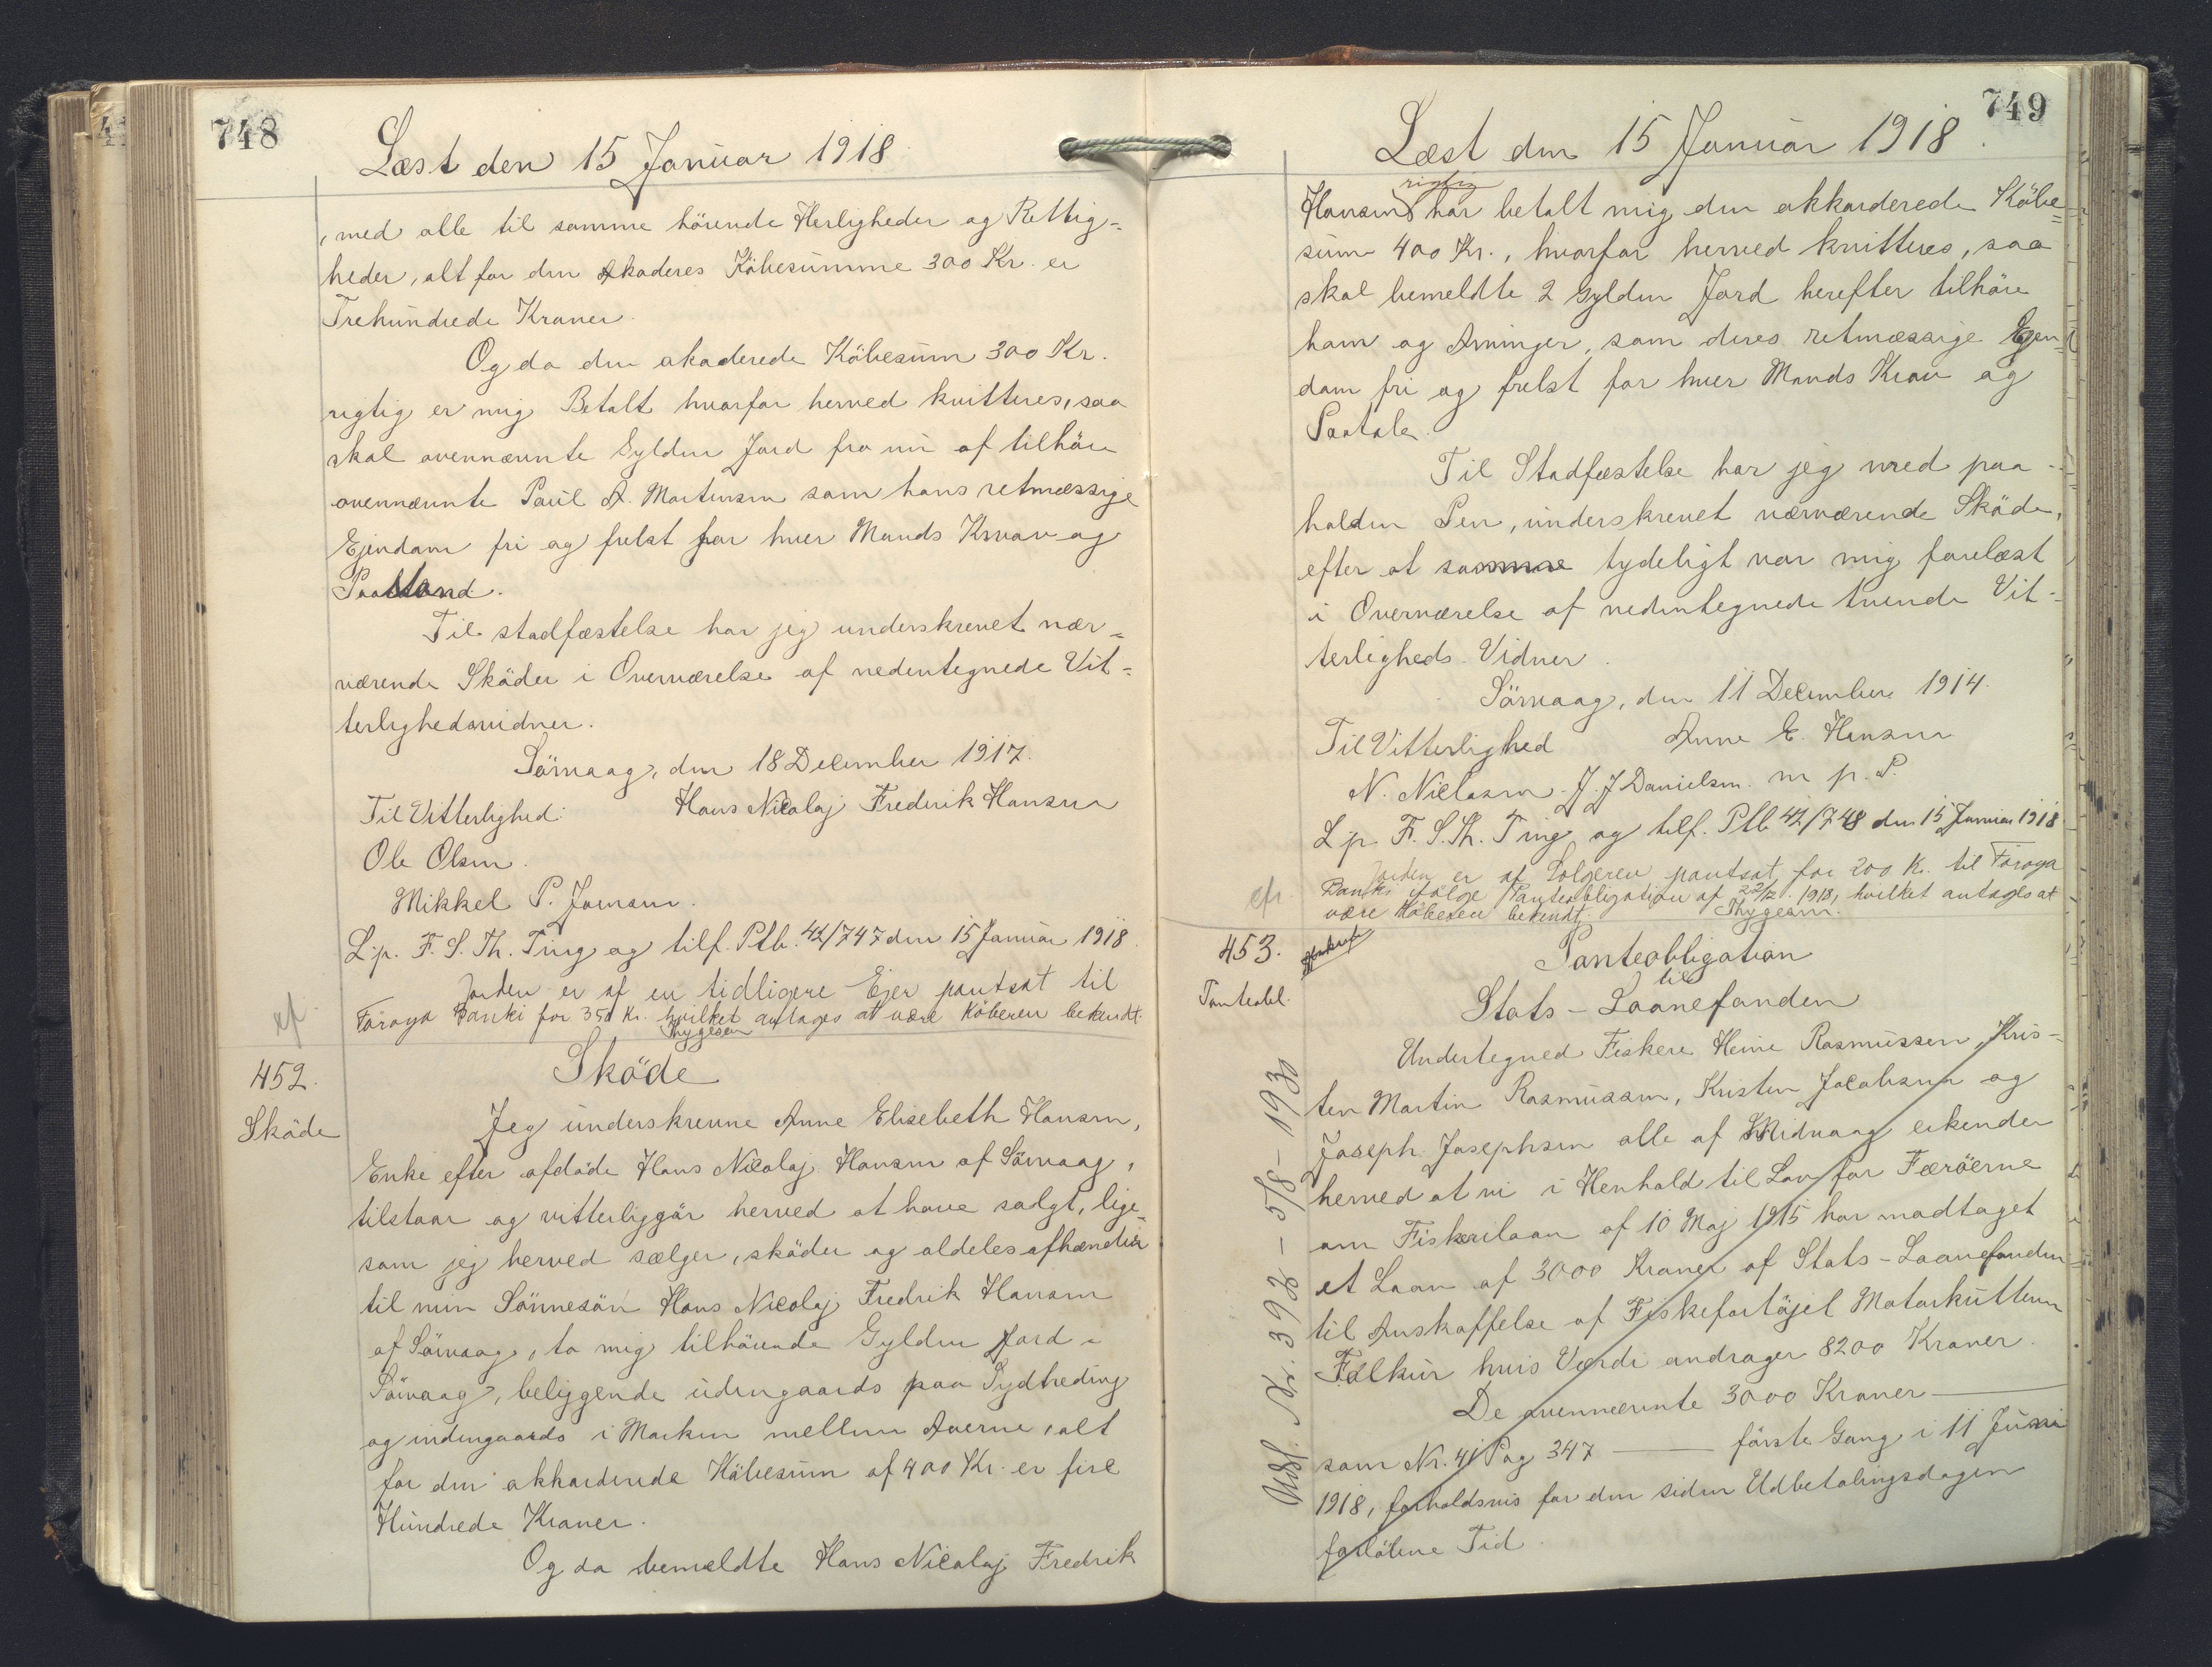 748
Læst den 15 Januar 1918
, med alle til samme hörende Herligheder og Rettig=
heder, alt for den Akoderes Köbesumme 300 Kr. er
Trehundrede Kroner.
Og da den akoderede Köbesum 300 Kr.
rigtig er mig Betalt hvorfor herved kvitteres, saa
skal ovennævnte Gylden Jord fra nu af tilhöre
ovennævnte Poul A. Mortensen som hans retmæssige
Ejendom fri og frelst for hver Mands Krav og
Paastand.
Til stadfæstelse har jeg underskrevet nær=
værende Sköder i Overværelse af nedentegnede Vit=
terlighedsvidner.
Sörvaag, den 18 December 1917.
Til Vitterlighed: Hans Nicolaj Frederik Hansen
Ole Olsen.
Mikkel P. Joensen.
L. p. F. S. Th. Ting og tilf. Ptb. 42/747 den 15 Januar 1918.
Jorden er af en tidligere Ejer pantsat til
Föroya Banki for 350 Kr. hvilket antages at være Köberen bekendt.
Thygesen
cfr.
452.
Sköde
Sköde
Jeg underskrevne Anne Elisebeth Hansen,
Enke efter afdöde Hans Nicolaj Hansen af Sörvaag,
tilstaar og vitterliggör herved at have solgt, lige=
som jeg herved sælger, sköder og aldeles afhænder
til min Sönnesön Hans Nicolaj Fredrik Hansen
af Sörvaag, to mig tilhörende Gylden Jord i
Sörvaag, beliggende udengaards paa Sydheding
og indengaards i Marken mellem Aaerne, alt
for den akkorderede Köbesum af 400 Kr. er fire
Hundrede Kroner.
Og da bemeldte Hans Nicolaj Fredrik
749
Læst den 15 Januar 1918.
rigtig
Hansen har betalt mig den akkorderede Köbe=
sum 400 Kr., hvorfor herved kvitteres, saa
skal bemeldte 2 Gylden Jord herefter tilhöre
ham og Arvinger, som deres retmæssige Ejen=
dom fri og frelst for hver Mands Krav og
Paatale.
Til Stadfæstelse har jeg med paa-
holden Pen, underskrevet nærværende Sköde,
efter at samme tydeligt var mig forelæst
i Overværelse af nedentegnede tvende Vit-
terligheds-Vidner.
Sörvaag, den 11 December 1914.
Til Vitterlighed Anne E. Hansen
N. Nielsen. J. J Danielsen. m. p. P.
L. p. F. S. Th. Ting og tilf. Ptb 42/748 den 15 Januar 1918
Jorden er af Sælgeren pantsat for 200 Kr. til Föroya
Banki ifölge Panteobligation af 22/12 1913, hvilket antages at
være Köberen bekendt. Thygesen.
cfr.
453.
Panteobl.
Panteobligation
til
Stats-Laanefonden
Undertegned Fiskere Heine Rasmussen, Kris-
ten Martin Rasmussen, Kristen Jacobsen og
Joseph Josephsen alle af Midvaag erkender
herved at vi i Henhold til Lov for Færöerne
om Fiskerilaan af 10 Maj 1915 har modtaget
et Laan af 3000 Kroner af Stats-Laanefonden
til Anskaffelse af Fiskefartöjet Motorkutteren
Falkur hvis Værdi andrager 8200 Kroner.
De ovennævnte 3000 Kroner
som Nr. 41 Pag 347 förste Gang i 11 Juni
1918, forholdsvis for den siden Udbetalingsdagen
forlöbne Tid.
Udsl. Nr. 392 - 5/8 - 1930